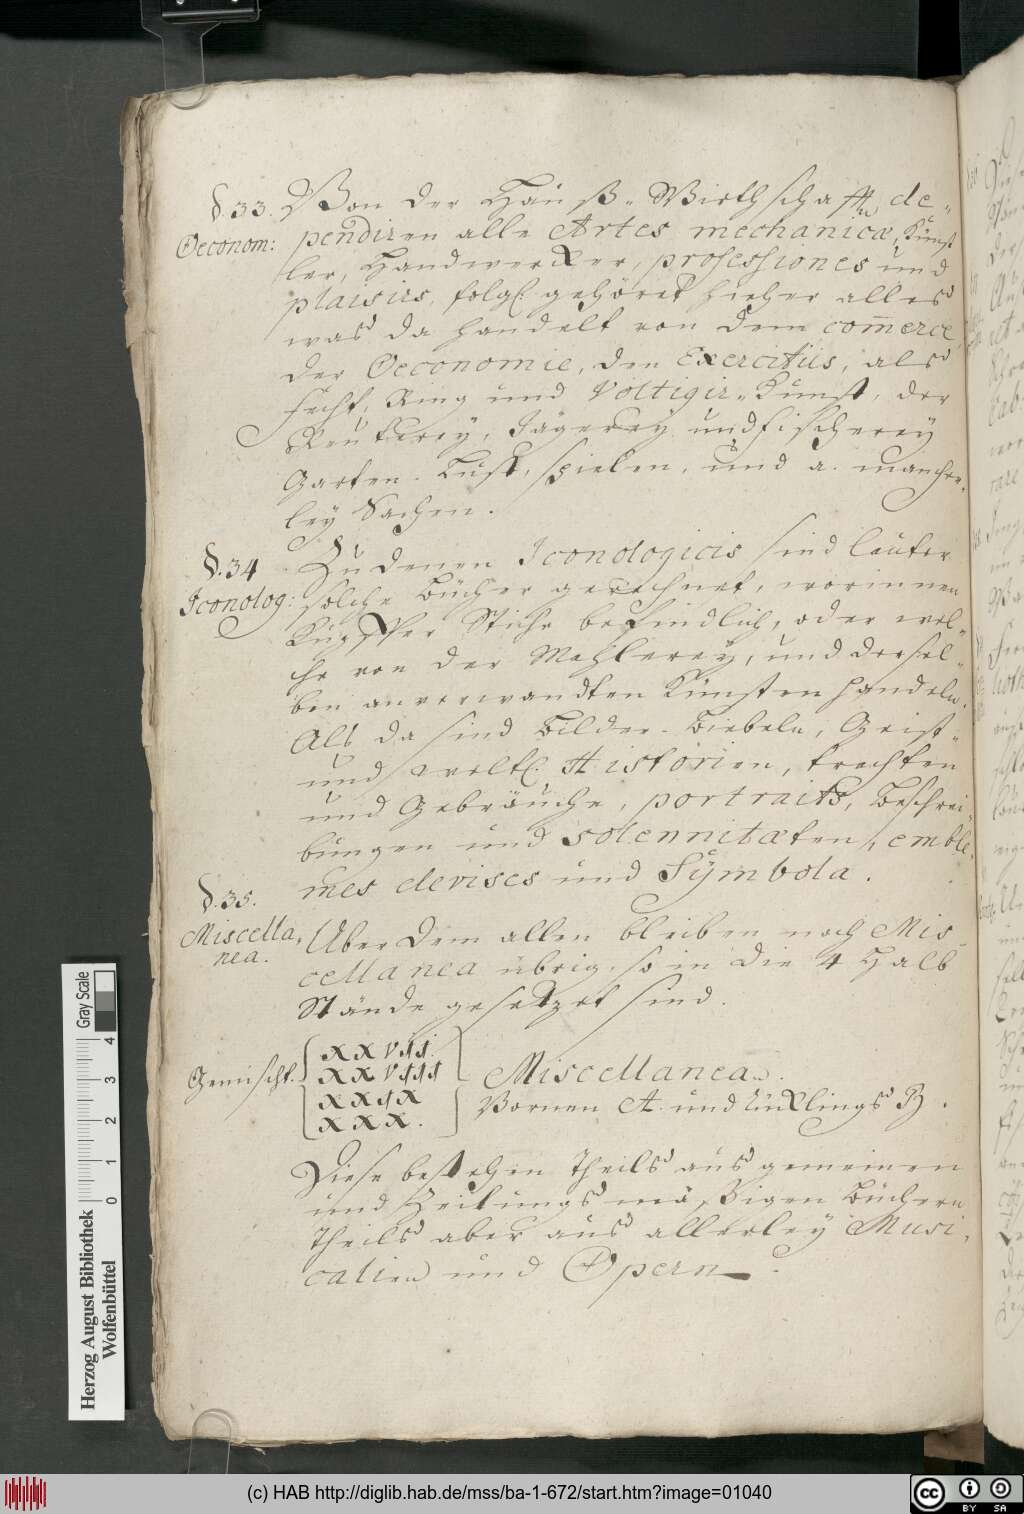 §.33. Von der Hauß-Wirthschafft, de-
Oeconom: pendiren alle Artes mechanicæ, Künst
ler, Handwercker, professiones und
plaisirs, folgl. gehöret hieher alles
was da handelt von dem com̅erce
der Oeconomie, den Exercitiis, als
fecht, Ring und Voltigir-Kunst, der
Reuterey, Jägerey und fischerey
Garten-Lust, spielen, und a. mancher-
ley Sachen.
§.34 Zu denen Iconologicis sind lauter
Iconolog: solche Bücher gerechnet, worinnen
Kupffer Stiche befindlich, oder wel-
che von der Mahlerey, und dersel-
ben anverwandten Künsten handeln.
Als da sind Bilder-Biebeln, Geist-
und weltl. Historien, trachten
und Gebräuche, portraits, Beschrei-
bungen und solennitæten, emble-
mes devises und Symbola.
§.35.
Miscella- Über dem allen bleiben noch Mis
nea. cellanea übrig, so in die 4 Halb
Stände gesetzet sind.
XXVII.
Gemischt. XXVIII Miscellanea.
XXIX Vornen A. und rücklings B.
XXX.
Diese bestehen Theils aus gemeinen
und Zeitungs mäßigen Büchern
Theils aber aus allerley Musi-
calien und Opern.
Gray Scale
4
3
2
1
0
Herzog August Bibliothek
Wolfenbüttel
(c) HAB http://diglib.hab.de/mss/ba-1-672/start.htm?image=01040
cc BY SA